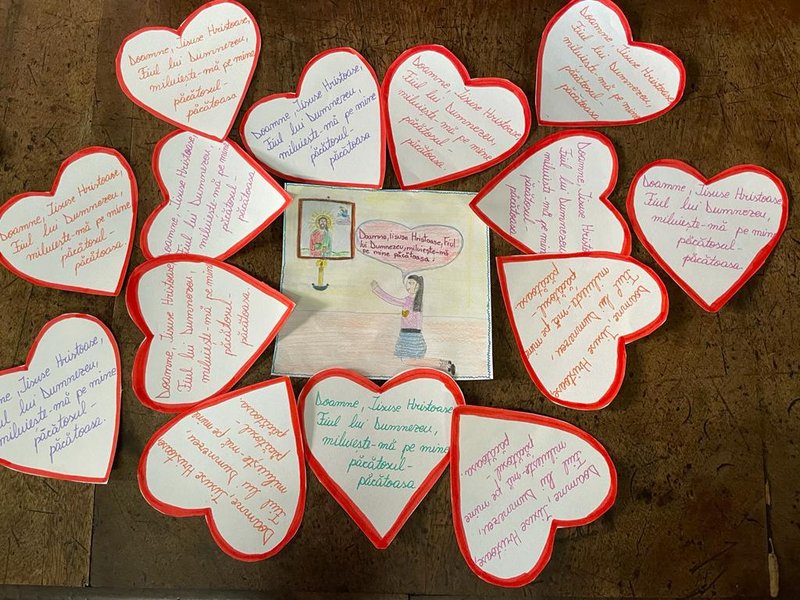 Doamne, Iisuse Hristoase,
Fiul lui Dumnezeu,
miluiește-mă pe mine
păcătosul-
păcătoasa
Doamne, Iisuse Hristoase,
Fiul lui Dumnezeu,
miluiește-mă pe mine
păcătosul-
păcătoasa.
Doamne, Iisuse Hristoase,
Fiul lui Dumnezeu,
miluiește-mă pe mine
păcătosul-
păcătoasa.
Doamne, Iisuse Hristoase,
Fiul lui Dumnezeu,
miluiește-mă pe mine
păcătosul-
păcătoasa.
Doamne, Iisuse Hristoase,
Fiul lui Dumnezeu,
miluiește-mă pe mine
păcătosul-
păcătoasa.
Doamne, Iisuse Hristoase
Fiul lui Dumnezeu,
miluiește-mă pe mine
păcătosul-
păcătoasa.
Doamne, Iisuse Hristoase,
Fiul lui Dumnezeu,
miluiește-mă pe mine
păcătosul-
păcătoasa.
Doamne, Iisuse Hristoase,
Fiul lui Dumnezeu,
miluiește-mă pe mine
păcătosul-
păcătoasa.
Doamne, Iisuse Hristoase, Fiul
lui Dumnezeu, miluiește-mă
pe mine păcătoasa!
Doamne, Iisuse Hristoase,
Fiul lui Dumnezeu,
miluiește-mă pe mine
păcătosul-
păcătoasa.
Doamne, Iisuse Hristoase
Fiul lui Dumnezeu,
miluiește-mă pe mine
păcătosul-
păcătoasa.
Doamne, Iisuse Hristoase,
Fiul lui Dumnezeu,
miluiește-mă pe mine
păcătosul-
păcătoasa.
Doamne, Iisuse Hristoase
Fiul lui Dumnezeu,
miluiește-mă pe mine
păcătosul-
păcătoasa.
Doamne, Iisuse Hristoase,
Fiul lui Dumnezeu,
miluiește-mă pe mine
păcătosul-
păcătoasa
Doamne, Iisuse Hristoase,
Fiul lui Dumnezeu,
miluiește-mă pe mine
păcătosul-
păcătoasa.